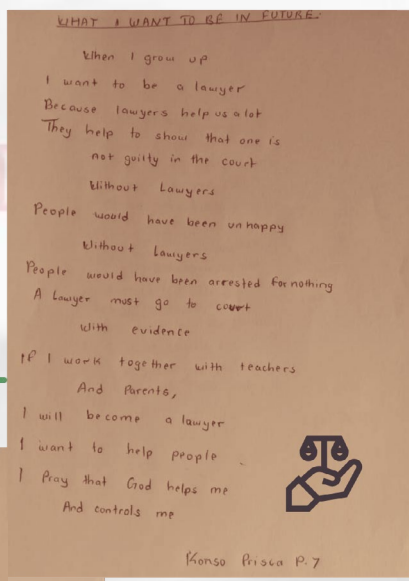 WHAT I WANT TO BE IN FUTURE.
When I grow up
I want to be a lawyer
Because lawyers help us a lot
They help to show that one is
not guilty in the court
Without Lawyers
People would have been unhappy
Without Lawyers
People would have been arrested for nothing
A Lawyer must go to court
With evidence
If I work together with teachers
And Parents,
I will become a lawyer
I want to help people
I Pray that God helps me
And controls me
Konso Prisca P.7